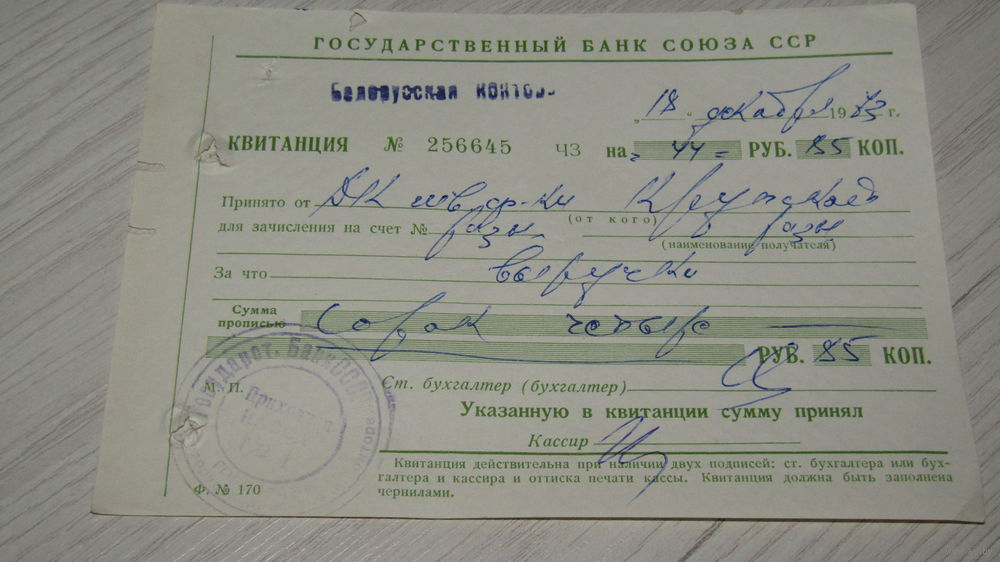 ГОСУДАРСТВЕННЫЙ БАНК СОЮЗА ССР
Белорусская контора
„ 18 “ декабря 1973 г.
КВИТАНЦИЯ № 256645 ЧЗ на = 44 = РУБ. 85 КОП.
Принято от ДК
(от кого)
для зачисления на счет №
(наименование получателя)
За что выручки
Сумма прописью Сорок четыре
РУБ. 85 КОП.
Государст. Банк СССР
М. П. Ст. бухгалтер (бухгалтер)
Приходная
Указанную в квитанции сумму принял
Кассир
Квитанция действительна при наличии двух подписей: ст. бухгалтера или бух-
галтера и кассира и оттиска печати кассы. Квитанция должна быть заполнена
чернилами.
Ф. № 170